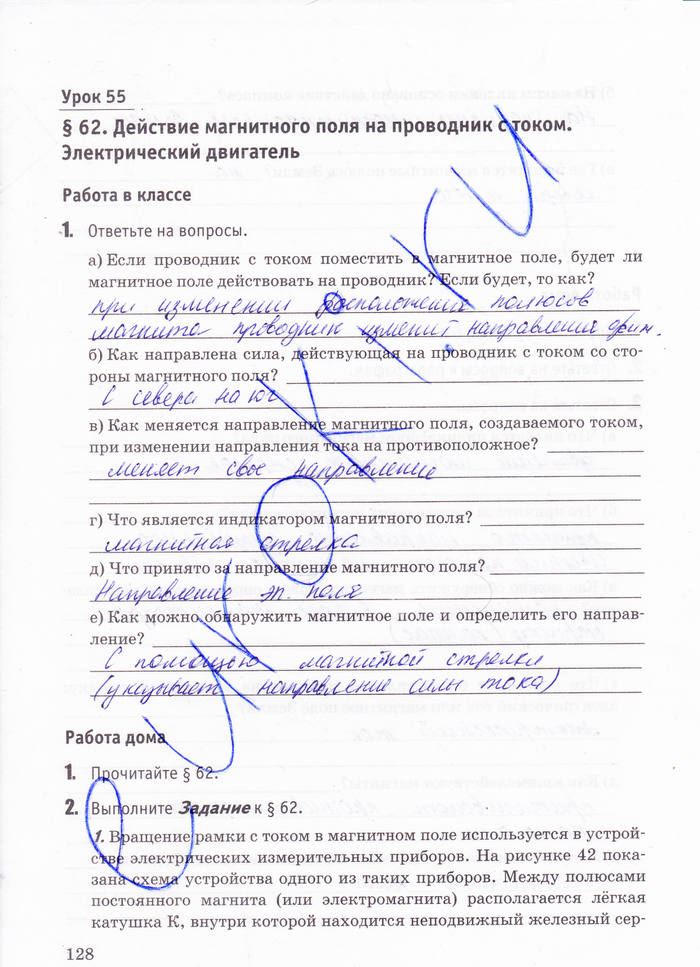 Урок 55
§ 62. Действие магнитного поля на проводник с током.
Электрический двигатель
Работа в классе
1. Ответьте на вопросы.
а) Если проводник с током поместить в магнитное поле, будет ли
магнитное поле действовать на проводник? Если будет, то как?
при изменении расположения полюсов
магнита проводник изменит направления движ.
б) Как направлена сила, действующая на проводник с током со сто-
роны магнитного поля?
С севера на юг
в) Как меняется направление магнитного поля, создаваемого током,
при изменении направления тока на противоположное?
меняет свое направление
г) Что является индикатором магнитного поля?
магнитная стрелка
д) Что принято за направление магнитного поля?
Направление эл. поля
е) Как можно обнаружить магнитное поле и определить его направ-
ление?
С помощью магнитной стрелки
(указывает направление силы тока)
Работа дома
1. Прочитайте § 62.
2. Выполните Задание к § 62.
1. Вращение рамки с током в магнитном поле используется в устрой-
стве электрических измерительных приборов. На рисунке 42 пока-
зана схема устройства одного из таких приборов. Между полюсами
постоянного магнита (или электромагнита) располагается лёгкая
катушка К, внутри которой находится неподвижный железный сер-
128